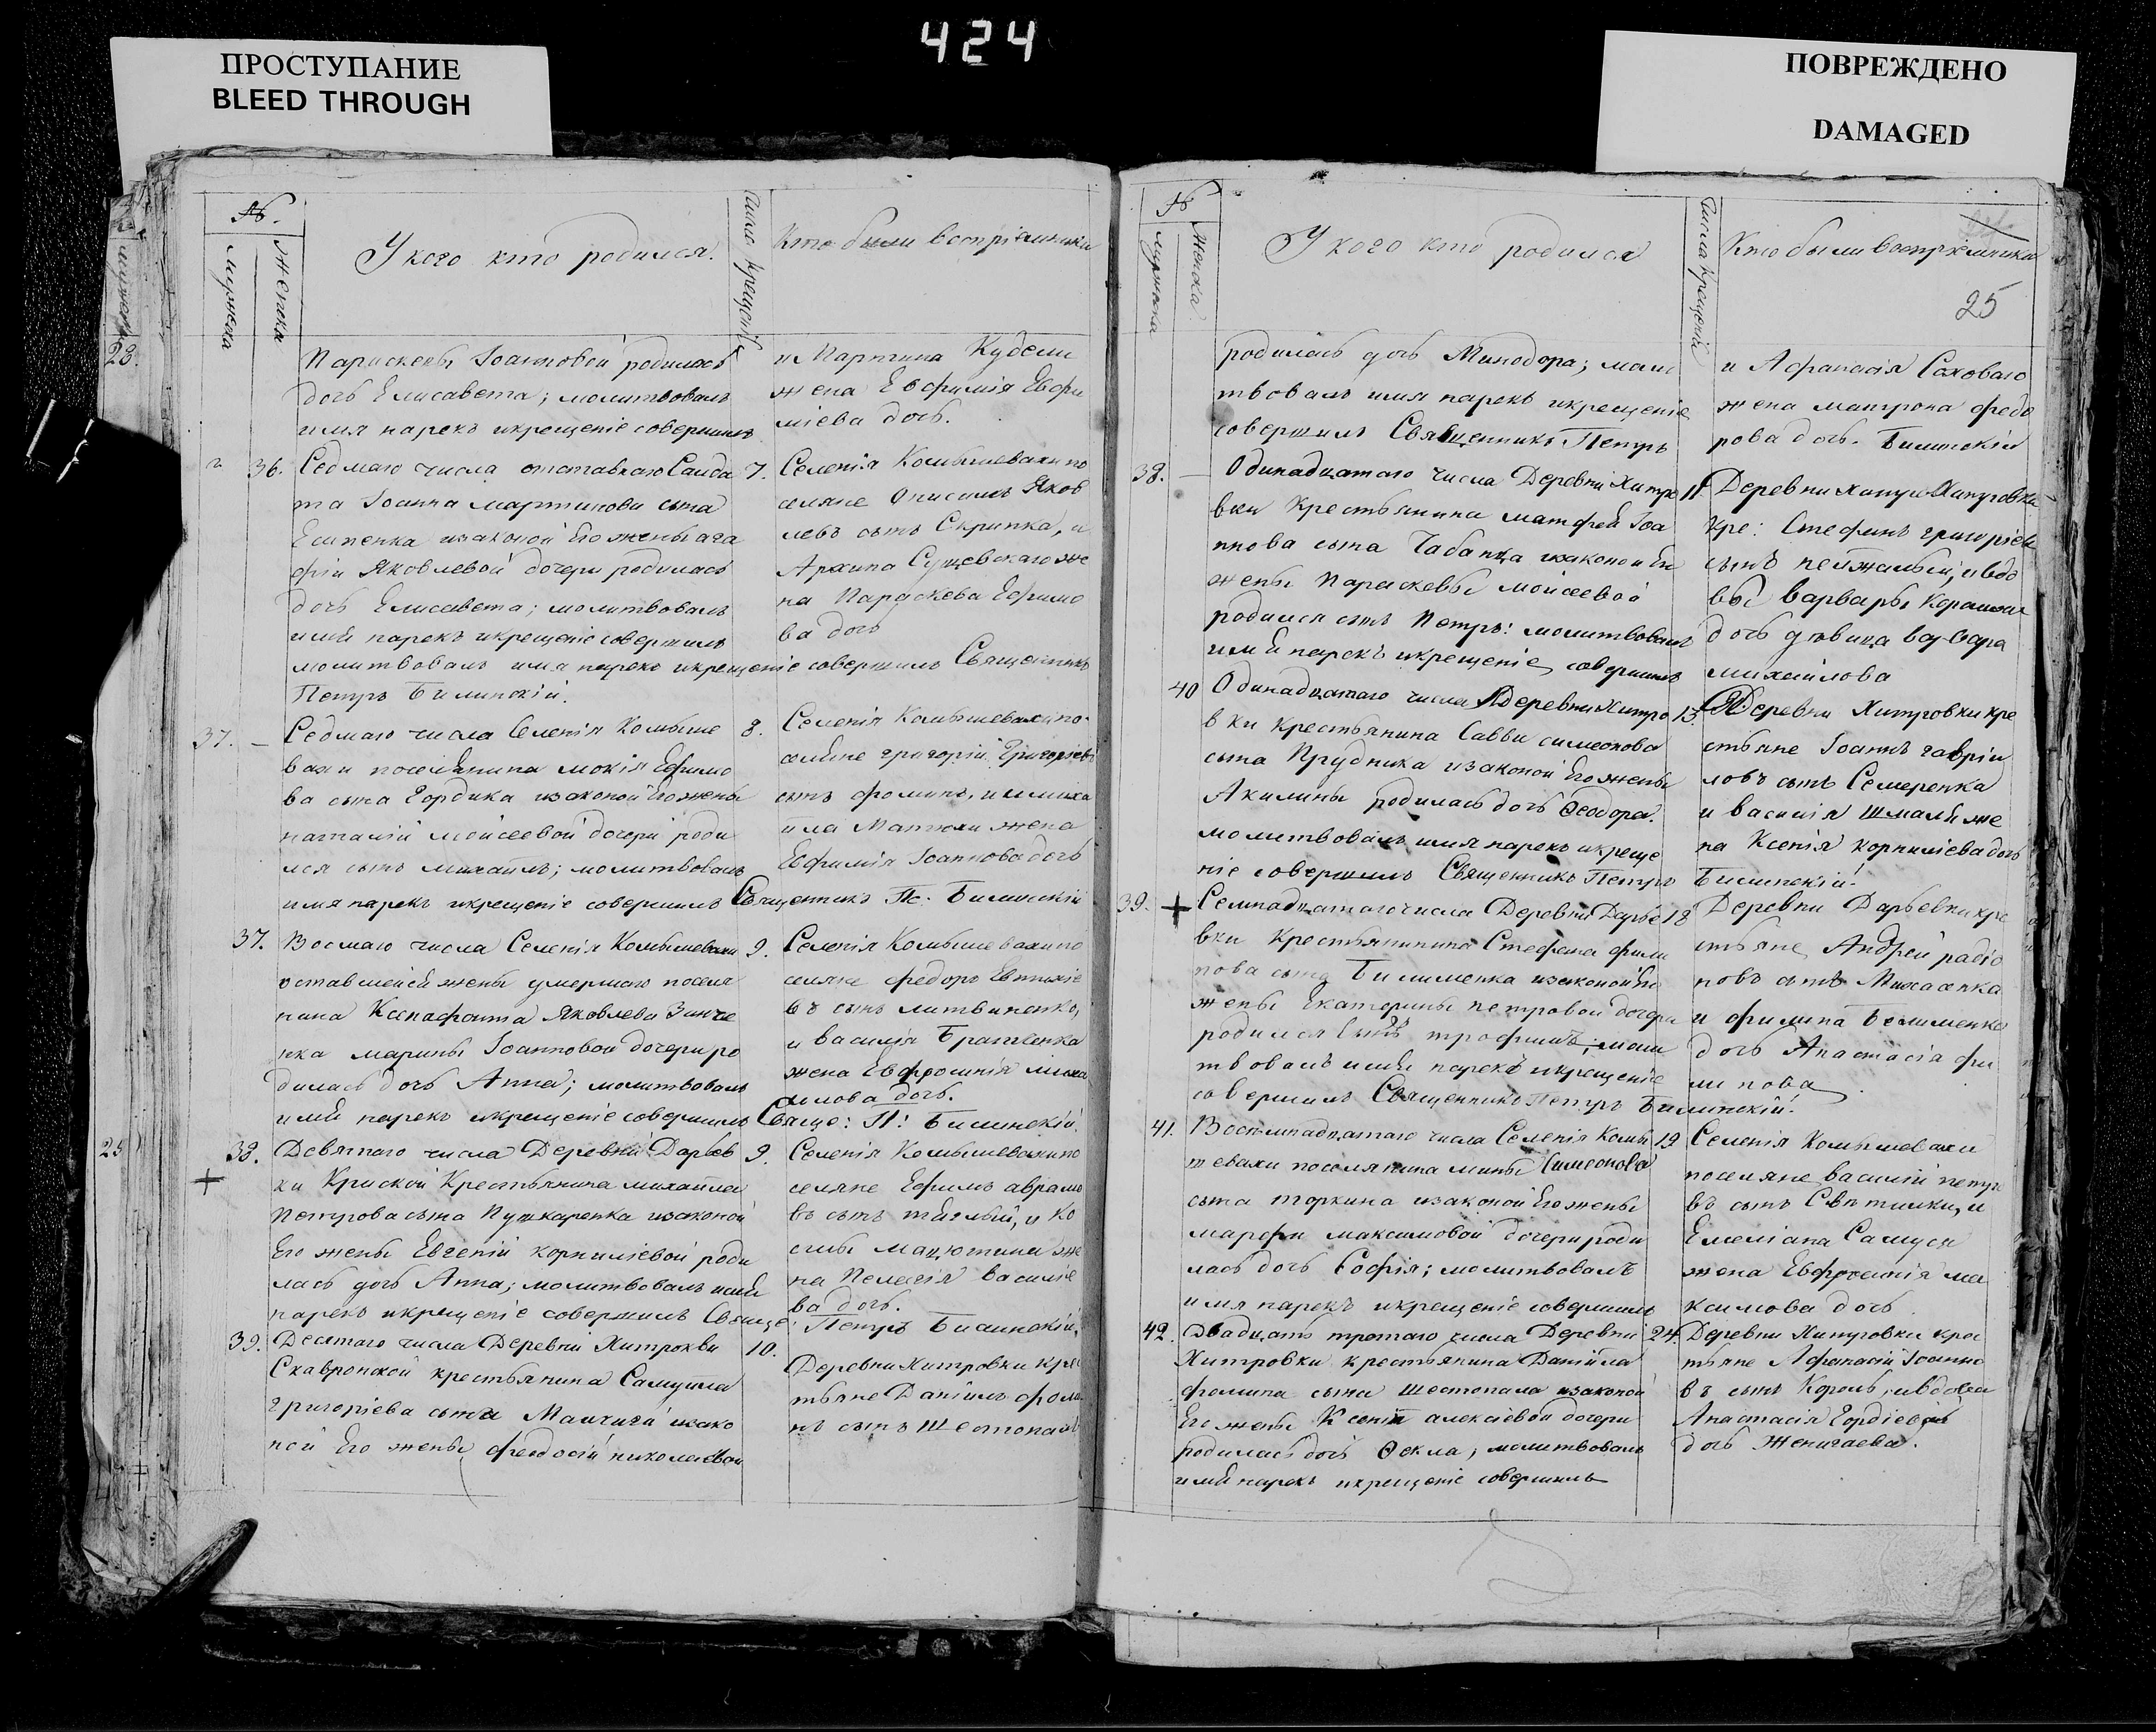 424
ПРОСТУПАНИЕ
BLEED THROUGH
ПОВРЕЖДЕНО
DAMAGED
№.
мужеска
женска
У кого кто родился.
число крещенія
Кто были воспріемники
23.
Параскевы Іоанновой родилась
дочь Елисавета; молитвовалъ
имя нарекъ икрещеніе совершилъ
и Мартина Кудели
жена Евфимія Евфи
міева дочь.
36.
Седмаго числа отставнаго Салда
та Іоанна мартинова сына
Есипенка изаконой Его жены ага
фіи Яковлевой дочери родилась
дочь Елисавета; молитвовалъ
имя нарекъ икрещеніе совершилъ
молитвовалъ имя нарекъ икрещеніе совершилъ Священникъ
Петръ Билинскій.
7.
Селенія Комышевахи по
селяне Онисимъ Яков
левъ сынъ Скрипка, и
Архипа Сущевскаго же
на Параскева Ефимо
ва дочь
37. —
Седмаго числа Селенія Комыше
вахи поселянина мокія Ефимо
ва сына Гордика изаконой Его жены
наталіи моисеевой дочери роди
лся сынъ михаилъ; молитвовалъ
имя нарекъ икрещеніе совершилъ Священникъ Пе. Билинскій
8.
Селенія Комышевахи по-
селяне григорій Григоріевъ
сынъ фоминъ, и миха
ила Матюхи жена
Евфимія Іоаннова дочь
37.
Восмаго числа Селенія Комышевахи
оставшейся жены умершаго поселя
нина Ксенофонта Яковлева Зинче
нка марины Іоанновой дочери ро
дилась дочь Анна; молитвовалъ
имя нарекъ икрещеніе совершилъ Свяще: П: Билинскій.
9.
Селенія Комышевахи по
селяне федоръ Евтихіе
въ сынъ литвиненко,
и василія Братченка
жена Евфросинія миха
илова дочь.
25
38.
+
Девятаго числа Деревни Дарьев
ки Криской Крестьянина михаила
Петрова сына Пушкаренка изаконой
Его жены Евгеніи корниліевой роди
лась дочь Анна; молитвовалъ имя
нарекъ икрещеніе совершилъ Свяще: Петръ Билинскій,
9.
Селенія Комышевахи по
селяне Ефимъ аврамо
въ сынъ тяглый, и Ко
смы мацютини же
на Пелагія василіе
ва дочь.
39.
Десятаго числа Деревни Хитровки
Скавронской крестьянина Самуила
григоріева сына изако
ной Его жены феодосіи николаевой
10.
Деревни Хитровки кре
тьяне Даніилъ фоми
нъ сынъ Шестопалъ
№
мужеска
Женска
У кого кто родился
числа крещенія
Кто были воспріемники
25
родилась дочь Минодора; моли
твовалъ имя нарекъ икрещеніе
совершилъ Священникъ Петръ
и Афанасія Саховаго
жена матрона федо
рова дочь. Билинскій
38. —
Одинадцатаго числа Деревни Хитро
вки Крестьянина матфея Іоа
ннова сына Чабанца изаконой Его
жены Параскевы моисеевой
родился сынъ Петръ: молитвовалъ
имя нарекъ икрещеніе совершилъ
11.
Деревни Хитровки
кре: Стефанъ григоріевъ
сынъ и вдо
вы варвары
дочь девица
михаилова
40
Одинадцатаго числа Деревни Хитро
вки крестьянина Саввы симеонова
сына Прудника изаконой Его жены
Акилины родилась дочь Ѳеодора.
молитвовалъ имя нарекъ икреще
ніе совершилъ Священникъ Петръ Билинскій.
13.
Деревни Хитровки кре
стьяне Іоаннъ гаврии
ловъ сынъ Семеренка
и василія шмаля же
на Ксенія корниліева дочь
39. +
Семнадцатаго числа Деревни Дарье
вки Крестьянина Стефана фили
пова сына Билименка изаконой Его
жены Екатерины петровой дочери
родился Сынъ трофимъ; моли
твовалъ имя нарекъ икрещеніе
совершилъ Священникъ Петръ Билинскій.
18
Деревни Дарьевки кре
стьяне Андрей радіо
новъ сынъ
и филипа Белименка
дочь Анастасія фи
липова
41.
Восемнадцатаго числа Селенія Комы
шевахи поселянина мины Симеонова
сына торкина изаконой Его жены
марфи максимовой дочери роди
лась дочь Софія; молитвовалъ
имя нарекъ икрещеніе совершилъ
19
Селенія Комышевахи
поселяне василій петро
въ сынъ и
Емеліана Самуся
жена Евфросинія ма
ксимова дочь
42.
Двадцать третаго числа Деревни
Хитровки крестьянина Даніила
фомина сына шестопала изаконой
Его жены Ксеніи алексіевой дочери
родилась дочь Ѳекла; молитвовалъ
имя нарекъ икрещеніе совершилъ
24.
Деревни Хитровки крес
тьяне Афанасій Іоанно
въ сынъ Король, и вдова
Анастасія Гордіева
дочь